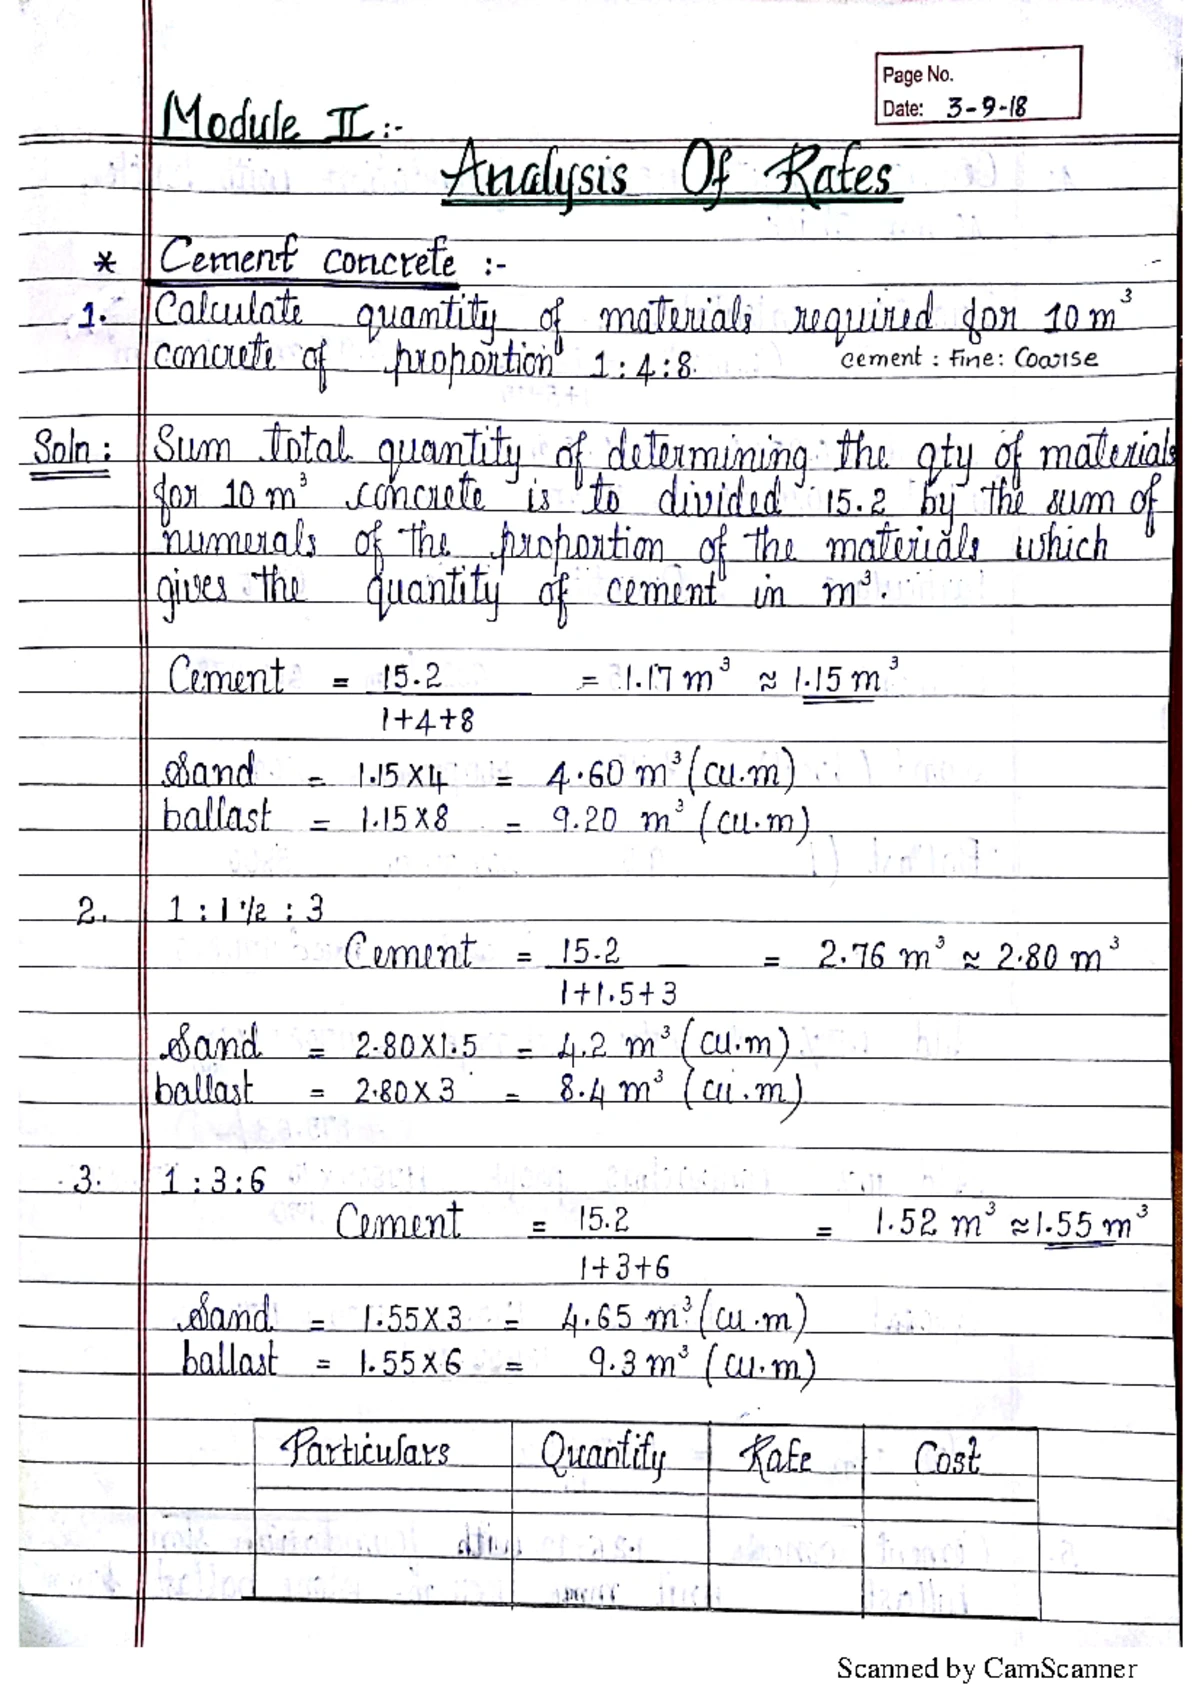 Page No.
Date: 3-9-18
Module II :-
Analysis Of Rates
* Cement concrete :-
1. Calculate quantity of materials required for 10 m³
concrete of proportion 1 : 4 : 8. cement : Fine : Coarse
Soln : Sum total quantity of determining the qty of materials
for 10 m³ concrete is to divided 15.2 by the sum of
numerals of the proportion of the materials which
gives the quantity of cement in m³.
Cement = 15.2 = 1.17 m³ ≈ 1.15 m³
1+4+8
Sand = 1.15 x 4 = 4.60 m³ (cu.m)
ballast = 1.15 x 8 = 9.20 m³ (cu.m)
2. 1 : 1 1/2 : 3
Cement = 15.2 = 2.76 m³ ≈ 2.80 m³
1+1.5+3
Sand = 2.80 x 1.5 = 4.2 m³ (cu.m)
ballast = 2.80 x 3 = 8.4 m³ (cu.m)
3. 1 : 3 : 6
Cement = 15.2 = 1.52 m³ ≈ 1.55 m³
1+3+6
Sand = 1.55 x 3 = 4.65 m³ (cu.m)
ballast = 1.55 x 6 = 9.3 m³ (cu.m)
Particulars Quantity Rate Cost
Scanned by CamScanner